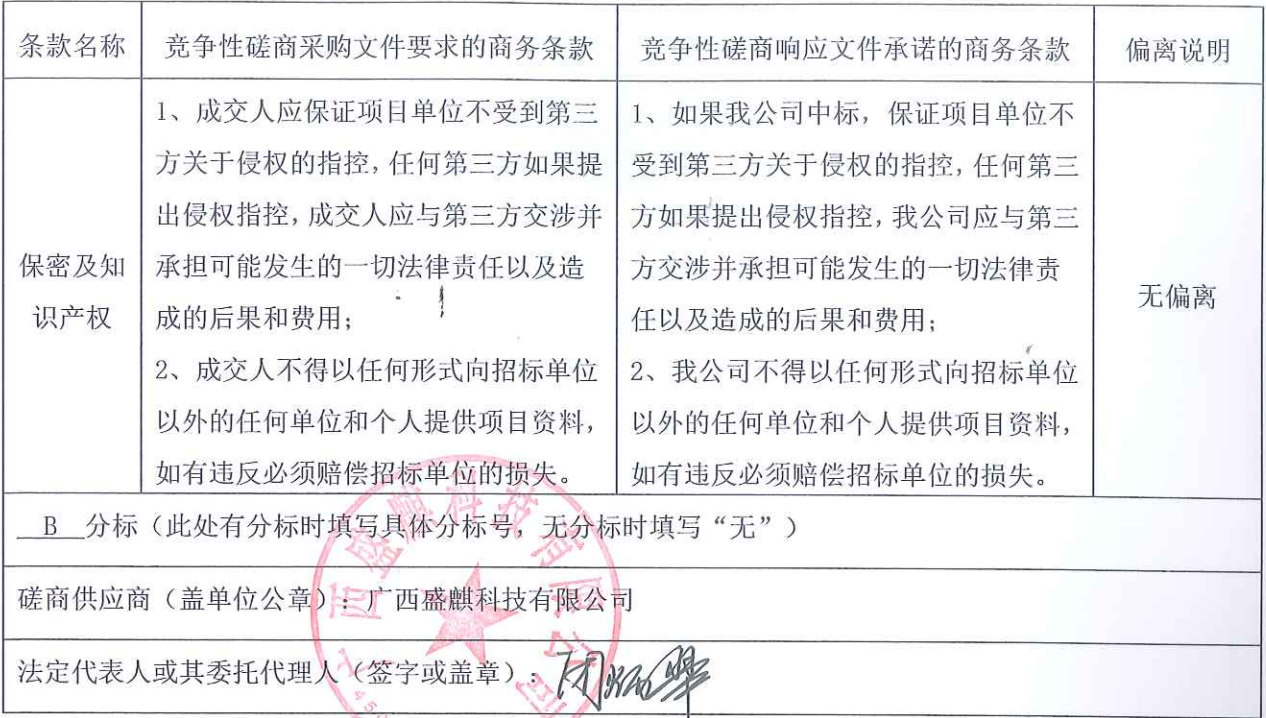 条款名称
竞争性磋商采购文件要求的商务条款
竞争性磋商响应文件承诺的商务条款
偏离说明
保密及知
识产权
1、成交人应保证项目单位不受到第三
方关于侵权的指控,任何第三方如果提
出侵权指控,成交人应与第三方交涉并
承担可能发生的一切法律责任以及造
成的后果和费用;
2、成交人不得以任何形式向招标单位
以外的任何单位和个人提供项目资料,
如有违反必须赔偿招标单位的损失。
1、如果我公司中标,保证项目单位不
受到第三方关于侵权的指控,任何第三
方如果提出侵权指控,我公司应与第三
方交涉并承担可能发生的一切法律责
任以及造成的后果和费用;
2、我公司不得以任何形式向招标单位
以外的任何单位和个人提供项目资料,
如有违反必须赔偿招标单位的损失。
无偏离
B 分标(此处有分标时填写具体分标号,无分标时填写“无”)
磋商供应商(盖单位公章):广西盛麒科技有限公司
法定代表人或其委托代理人(签字或盖章):